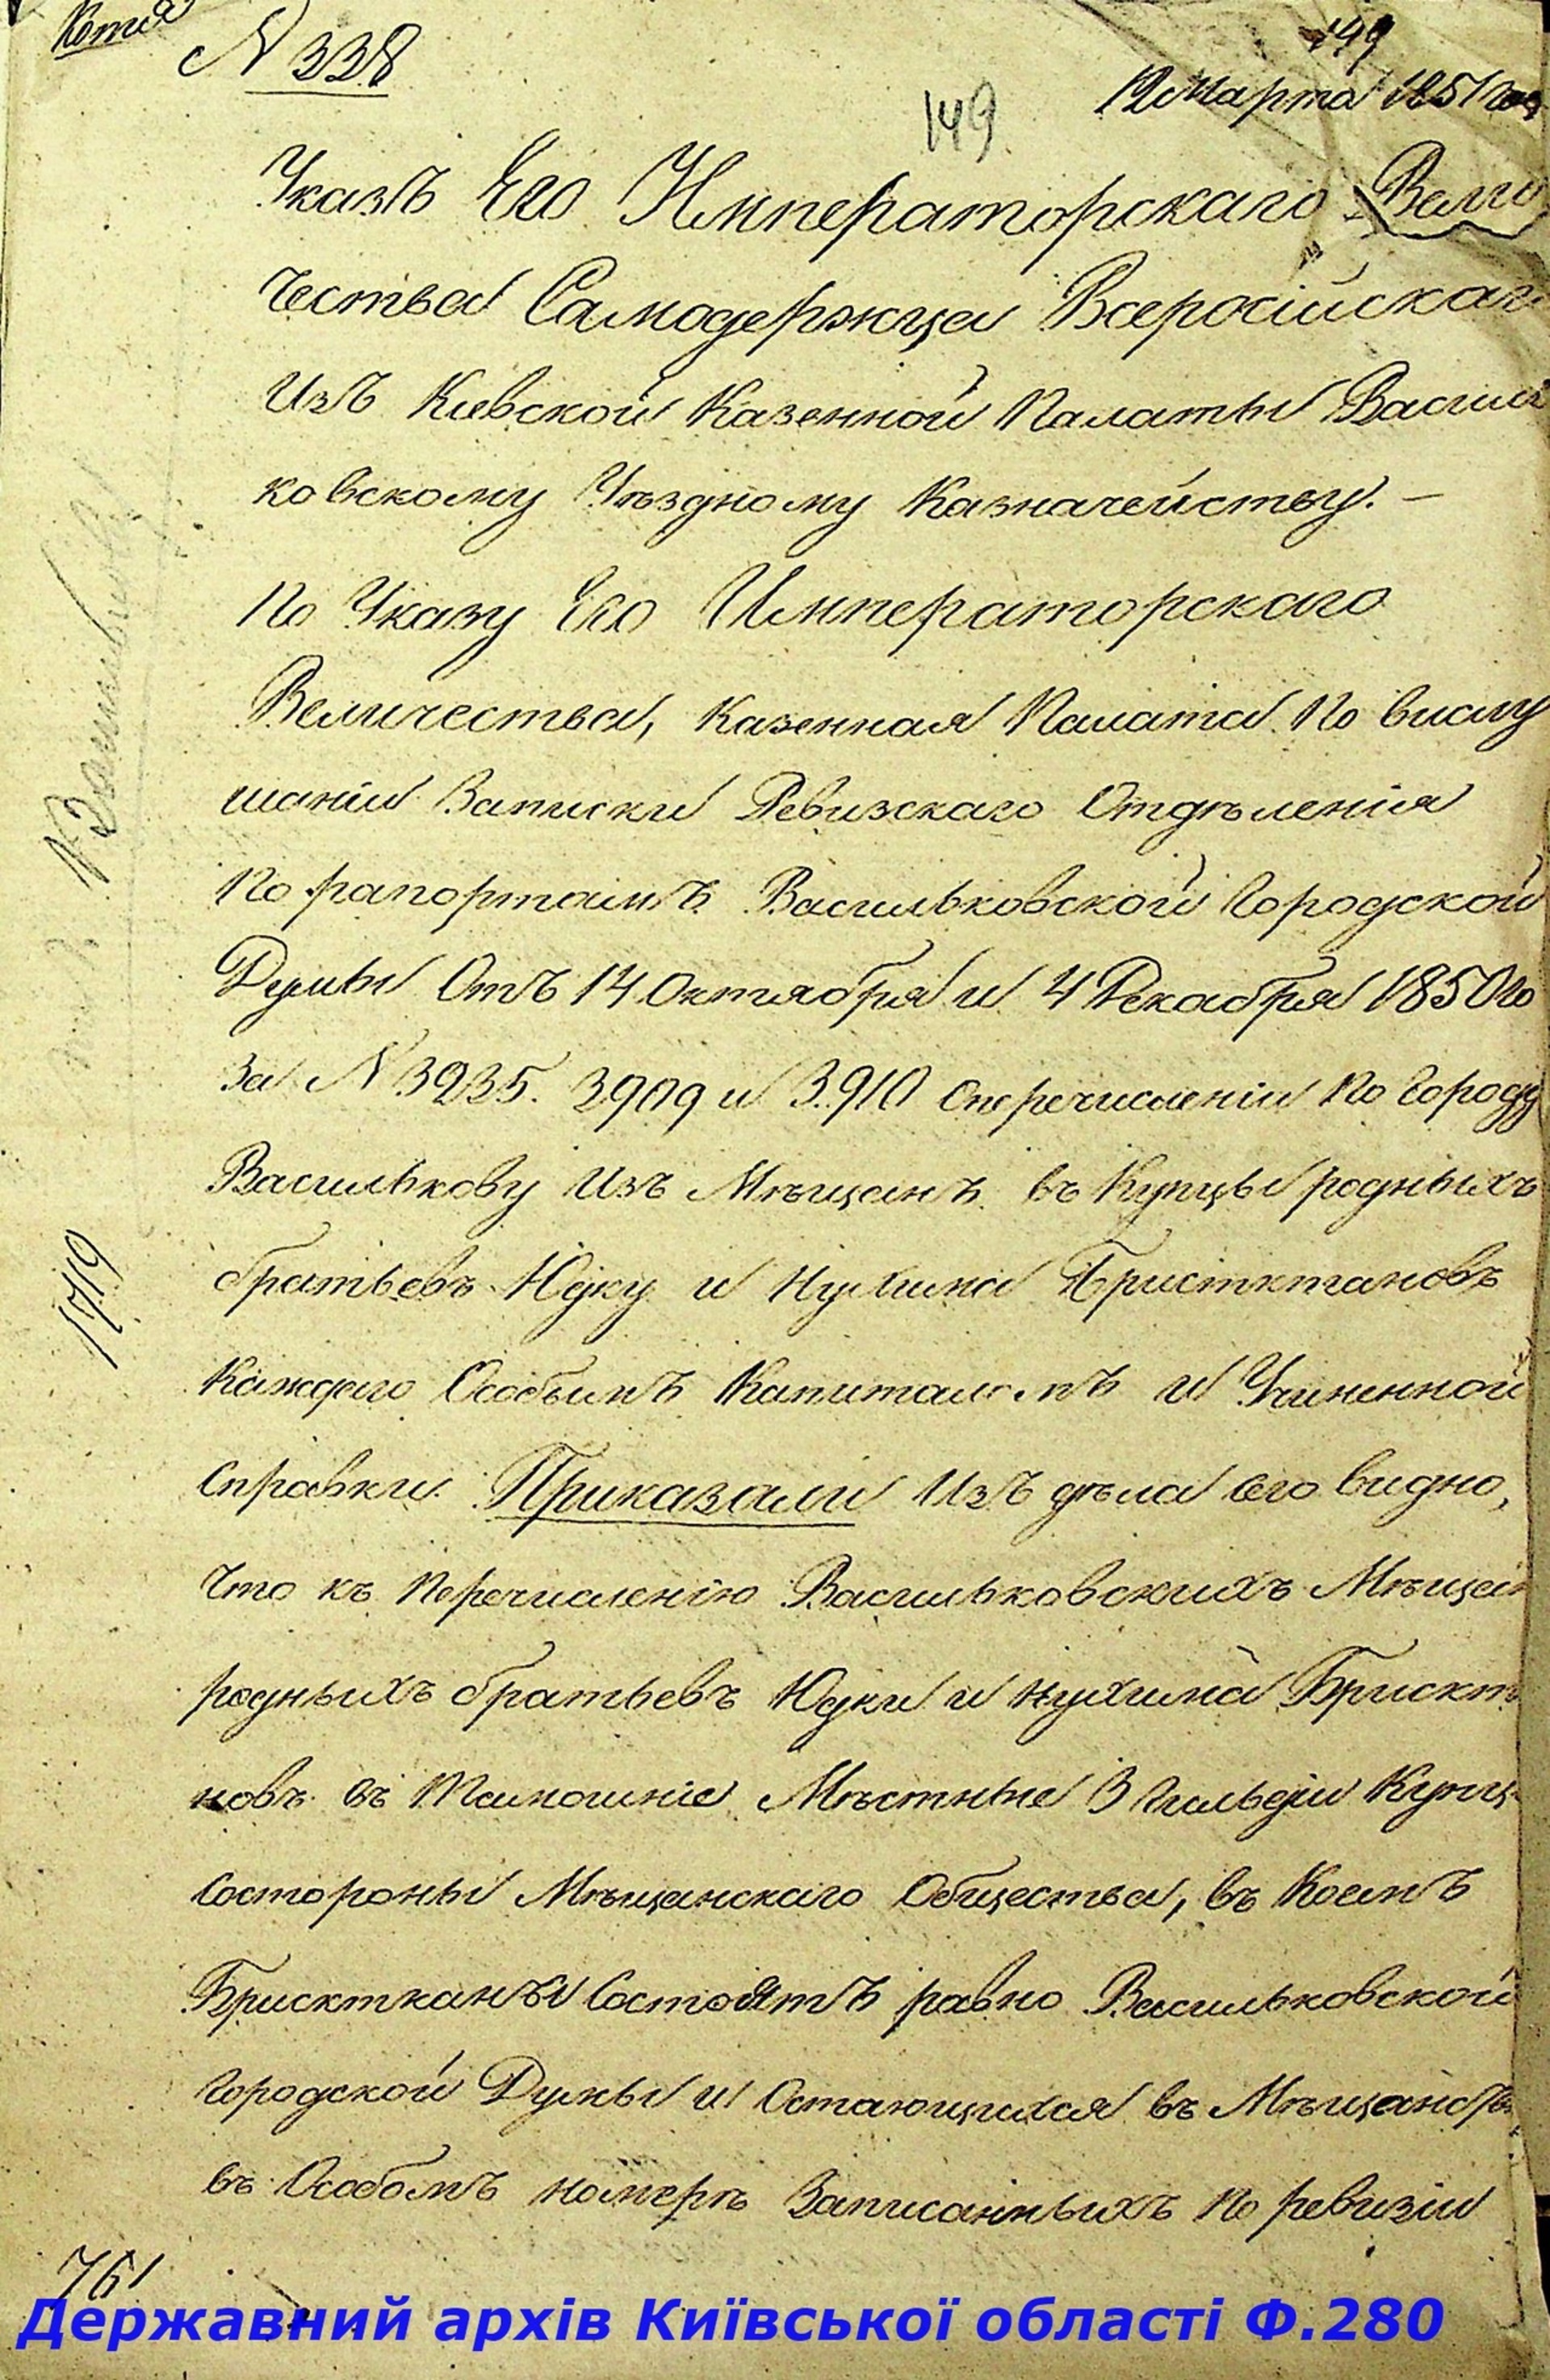 Копія
N 338
149
12 Марта 1851 года
149
Указъ Его Императорскаго Вели
чества Самодержца Всеросійскаго
Изъ Киевской Казенной Палаты Василь
ковскому Уѣздному Казначейству. —
По Указу Его Императорскаго
Величества, Казенная Палата по вислу
шаніи Записки Ревизскаго Отдѣленія
По рапортамъ Васильковской Городской
Думы Отъ 14 Октября и 4 Декабря 1850 го
За N 3235. 3909 и 3910 оперечисленіи по Городу
Василькову Изъ Мѣщанъ въ Купцы родныхъ
братьевъ Юдку и Нухима Бристктановъ
Каждаго Особымъ Капиталомъ и Учиненной
Справки. Приказали Изъ дѣла сего видно,
Что къ перечисленію Васильковскихъ Мѣщан
родныхъ братьевъ Юдки и Нухима Брискт
новъ въ Тамошніе Мѣстные 3 Гильдіи Купц
Состороны Мѣщанскаго Общества, въ Коемъ
Брисктканы Состоятъ равно Васильковской
Городской Думы и Остающихся въ Мѣщанствѣ
въ Особомъ номерѣ Записанныхъ по ревизіи
1719
761
Державний архів Київської області Ф.280